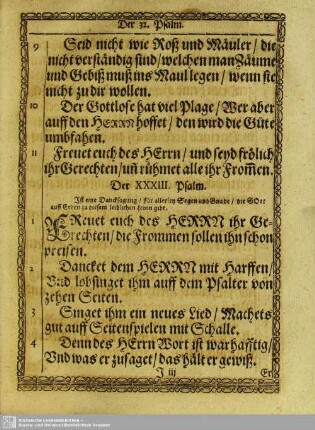 Der 32. Psalm.
9 Seid nicht wie Roß und Mäuler / die
nicht verständig sind / welchen man Zäume
und Gebiß muß ins Maul legen / wenn sie
nicht zu dir wollen.
10 Der Gottlose hat viel Plage / Wer aber
auff den HERRN hoffet / den wird die Güte
umbfahen.
11 Freuet euch des HErrn / und seyd frölich
ihr Gerechten / uñ rühmet alle ihr From̃en.
Der XXXIII. Psalm.
Ist eine Dancksagung / für allerley Segen und Gnade / die GOtt
auff Erden zu diesem leiblichen Leben gibt.
1 FReuet euch des HERRN ihr Ge-
rechten / die Frommen sollen ihn schon
preisen.
2 Dancket dem HERRN mit Harffen /
Vnd lobsinget ihm auff dem Psalter von
zehen Seiten.
3 Singet ihm ein neues Lied / Machets
gut auff Seitenspielen mit Schalle.
4 Denn des HErrn Wort ist warhafftig /
Vnd was er zusaget / das hält er gewiß.
J iij Er